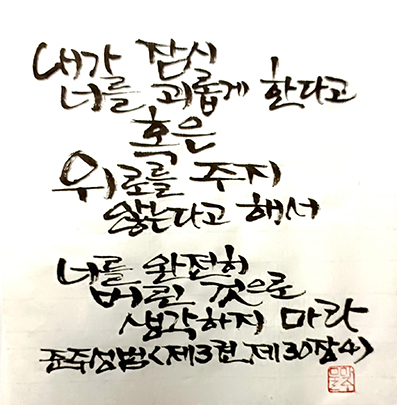 내가 잠시
너를 괴롭게 한다고
혹은
위로를 주지
않는다고 해서
너를 완전히
버린 것으로
생각하지 마라
준주성범<제3권 제30장4>